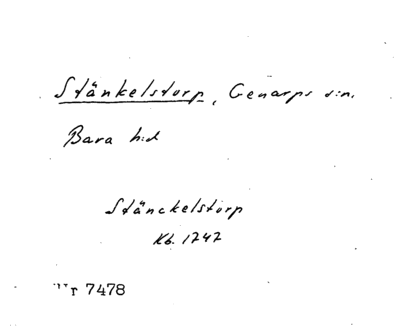 Stänkelstorp, Genarps s:n.
Bara h:d
Stänckelstorp
Kb. 1747
Nr 7478